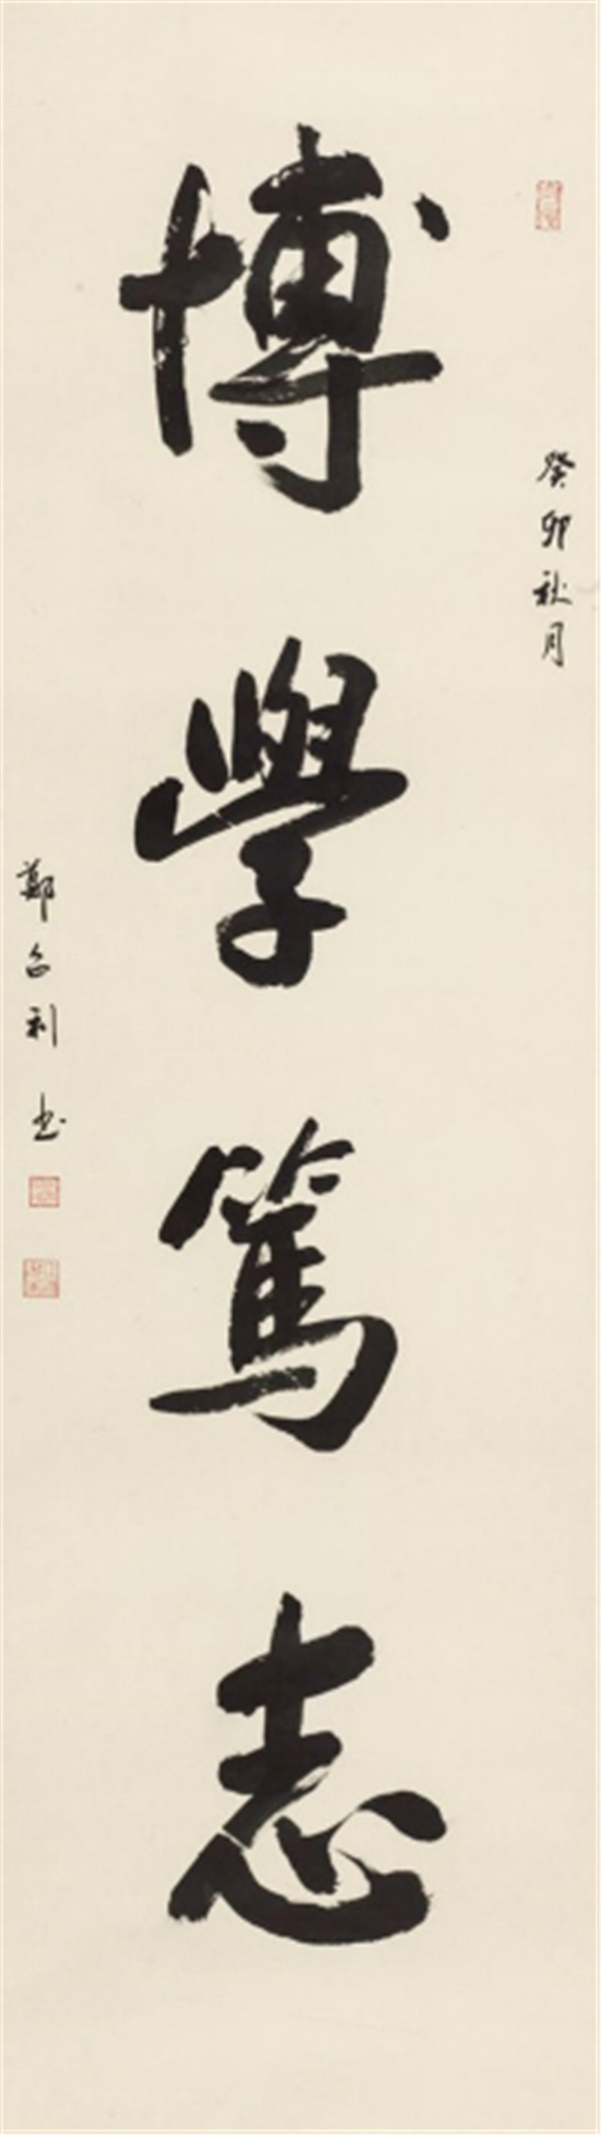 癸卯秋月
博學篤志
鄭 利书